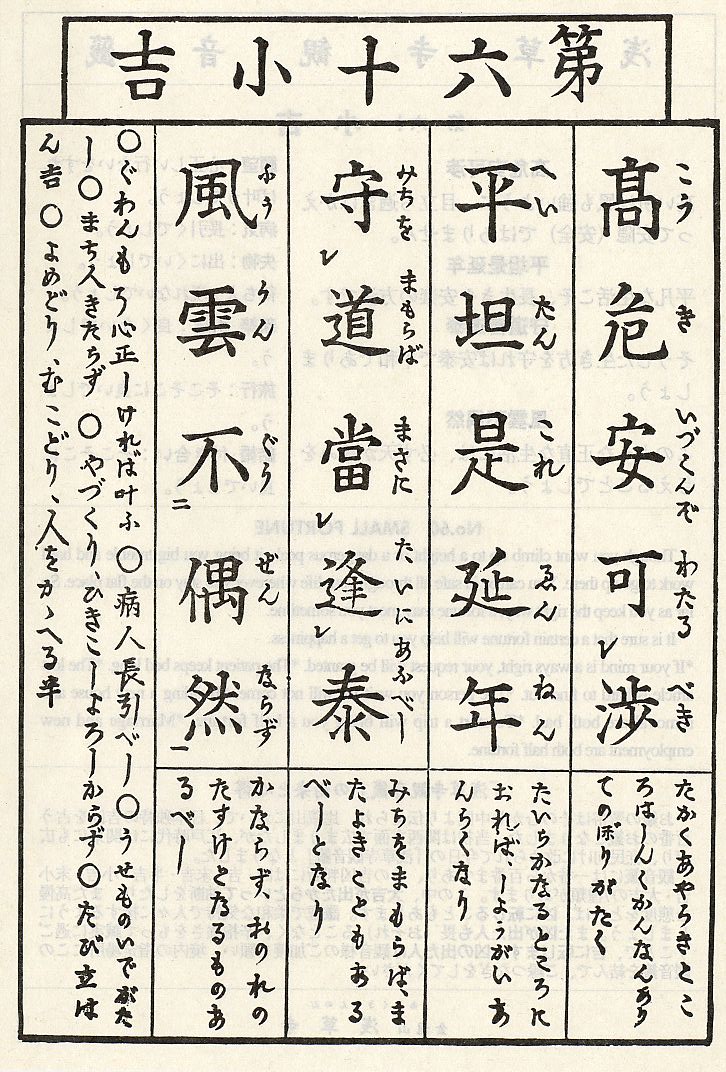 第六十小吉
髙危安可渉
こう き いづくんぞ わたる べき
たかくあやうきとこ
ろはしんくかんなんあり
てのぼりがたく
平坦是延年
へい たん これ ゑん ねん
たいらかなるところに
おれば、しようがいあ
んらくなり
守レ道當レ逢レ泰
みちを まもらば まさに たいにあふべし
みちをまもらば、ま
たよきこともある
べしとなり
風雲不二偶然一
ふう うん ぐう ぜん ならず
かならずおのれの
たすけとなるものあ
るべし
○ぐわんもう心正しければ叶ふ ○病人長引べし○うせものいでがた
し○まち人きたらず ○やづくりひきこしよろしからず○たび立は
ん吉 ○よめどり、むこどり、人をかゝへる半